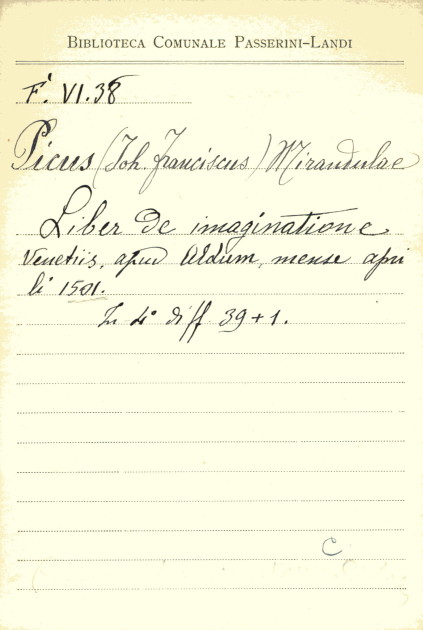 BIBLIOTECA COMUNALE PASSERINI-LANDI
F'. VI.38
Picus (Joh. Franciscus) Mirandulae
Liber de imaginatione
Venetiis, apud Aldum, mense apri
li 1501.
In 4° di ff 39+1.
C